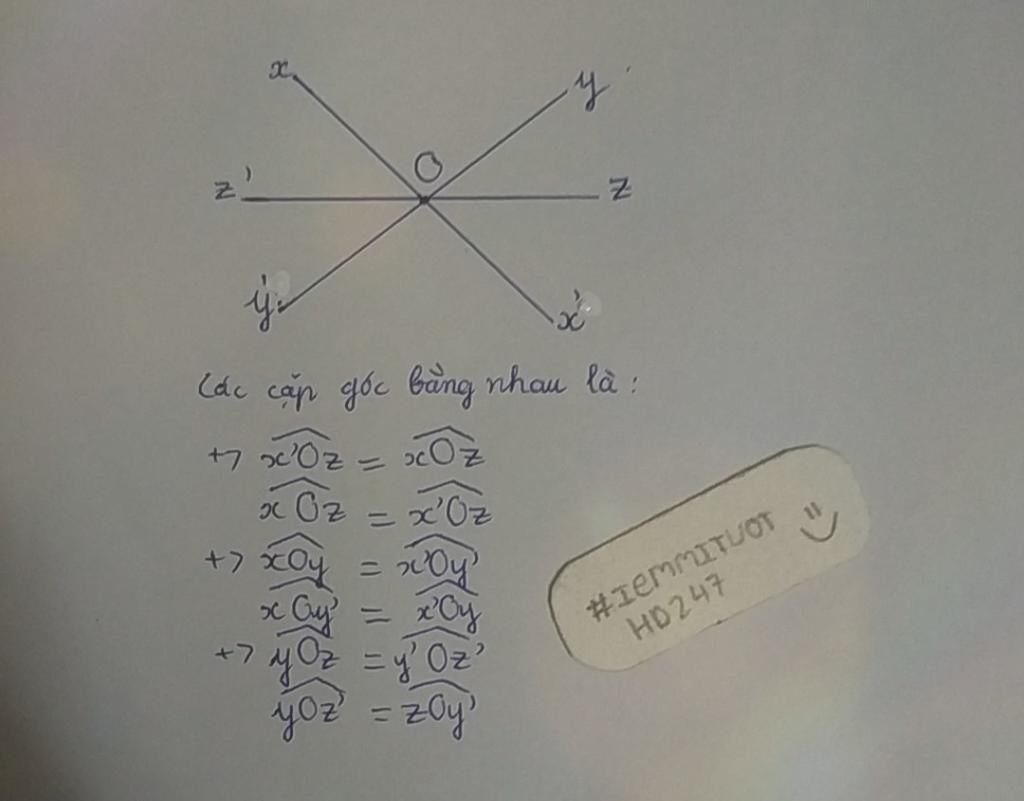 x
y
O
z'
z
y'
x'
Các cặp góc bằng nhau là:
+> x'Oz = xOz
xOz = x'Oz
+> xOy = x'Oy'
xOy' = x'Oy
+> yOz = y'Oz'
yOz' = zOy'
#IEMMITUOT
HD247